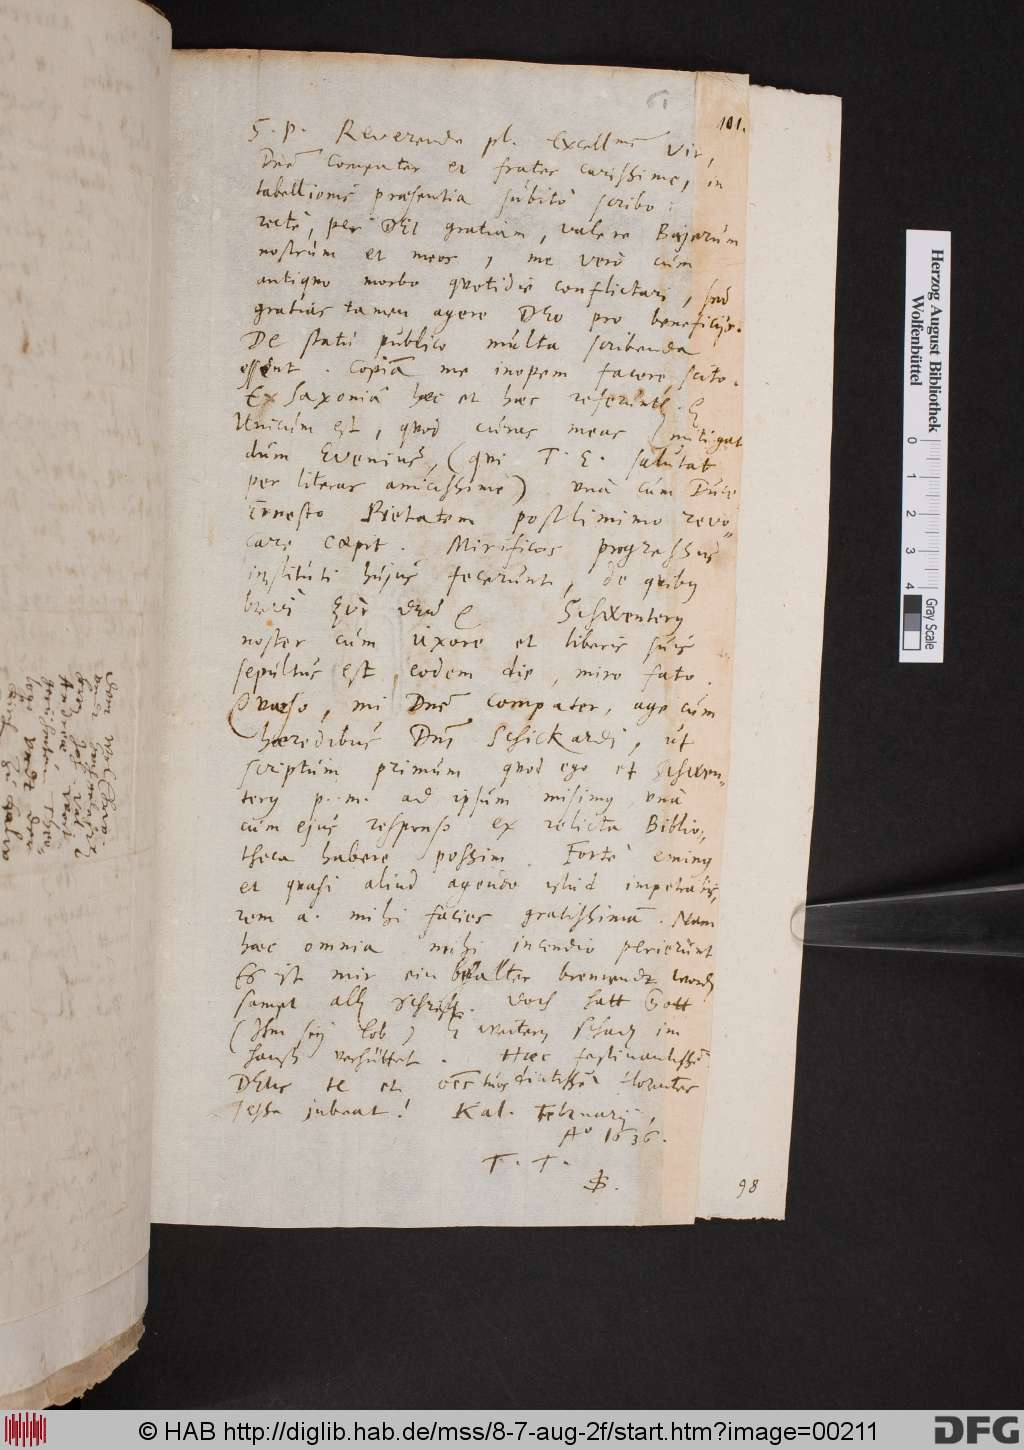 61
101.
S. P. Reverende pl. Excellme Vir,
Dne Compater et frater carissime, in
tabellionis præsentia súbitò scribo:
rectè, per DEI gratiam, valere Bajerúm
nostrúm et meos, me verò cúm
antiquo morbo quotidie conflictari, sed
gratias tamen agere DEO pro beneficijs.
DE statú público múlta scribenda
essent. Copiâ me inopem facere scito.
Ex Saxoniâ hæc et hæc referúnt
Unicúm est, quod cúras meas mitigat
dúm Evenius, (qui T. E. salútat
per literas amicissimè) vnà cúm Dúce
Ernesto Pietatem postliminio revo
care cæpit. Mirificos progressús
institúti hújus fecerúnt, de quibus
Schwenterus
noster cúm úxore et liberis súis
sepúltús est, eodem die, miro fato.
Quæso, mi Dne Compater, age cúm
hæredibús Dni Schickardi, út
scriptúm primúm quod ego et Schwen-
terus p. m. ad ipsúm misimus, vnà
cúm ejús responso ex relicta Biblio-
theca habere possim. Fortè enim
et quasi aliud agendo istúd impetrabis,
rem a. mihi facies gratissimâ. Nam
hæc omnia mihi incendio perierúnt
Es ist mir ein behalter brennendt worden
sampt alln schrifften. Doch hatt Gott
(Ihm sey lob) weitern schadn im
hauß verhüttet. Hæc festinantissimè
DEUS te et oes túos diutissimè florentes
esse jubeat! Kal. Febrúarij,
Ao 1636.
T. T.
S.
98
Herzog August Bibliothek
Wolfenbüttel
0 1 2 3 4
Gray Scale
© HAB http://diglib.hab.de/mss/8-7-aug-2f/start.htm?image=00211
DFG